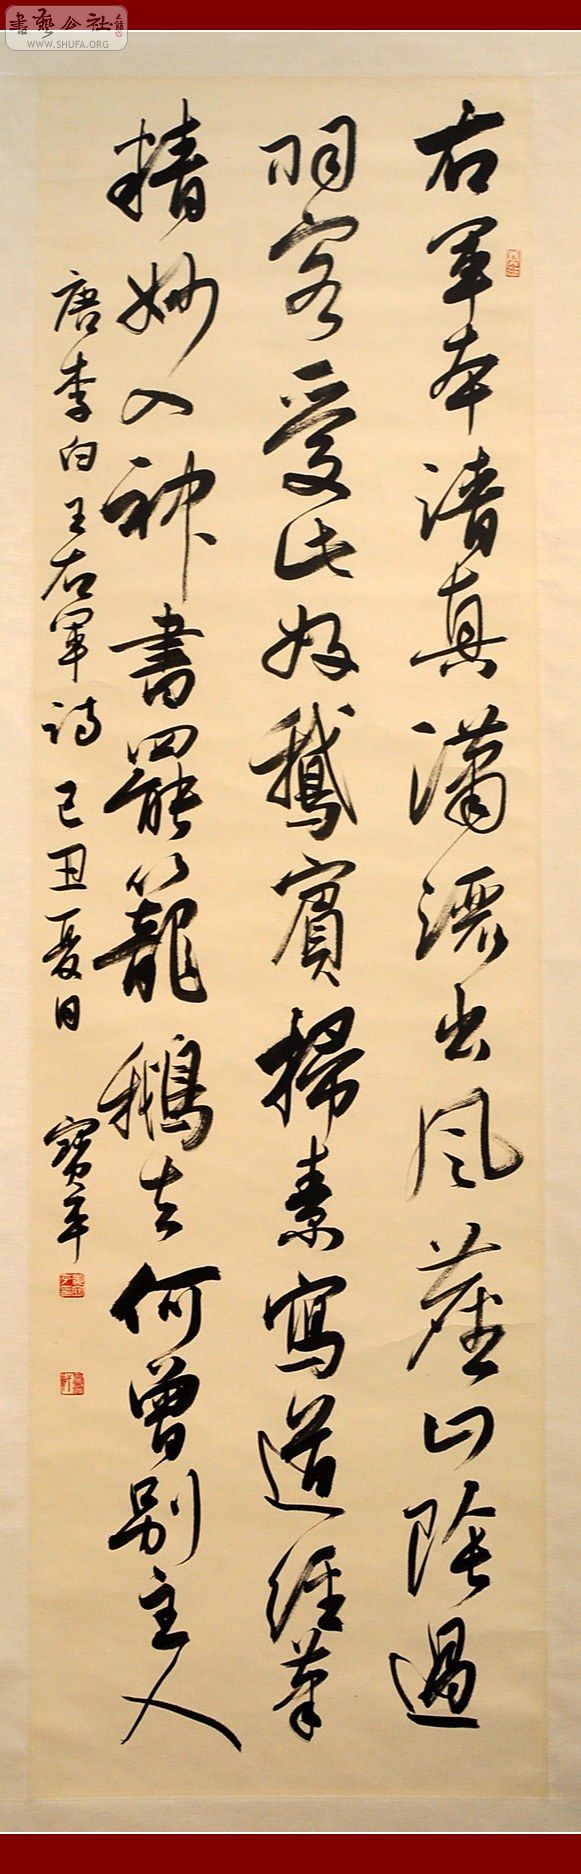 書藝公社
WWW.SHUFA.ORG
右軍本清真瀟灑出風塵山陰過
羽客愛此好鵝賓掃素寫道經筆
精妙入神書罷籠鵝去何曾別主人
唐李白王右軍詩 己丑夏日